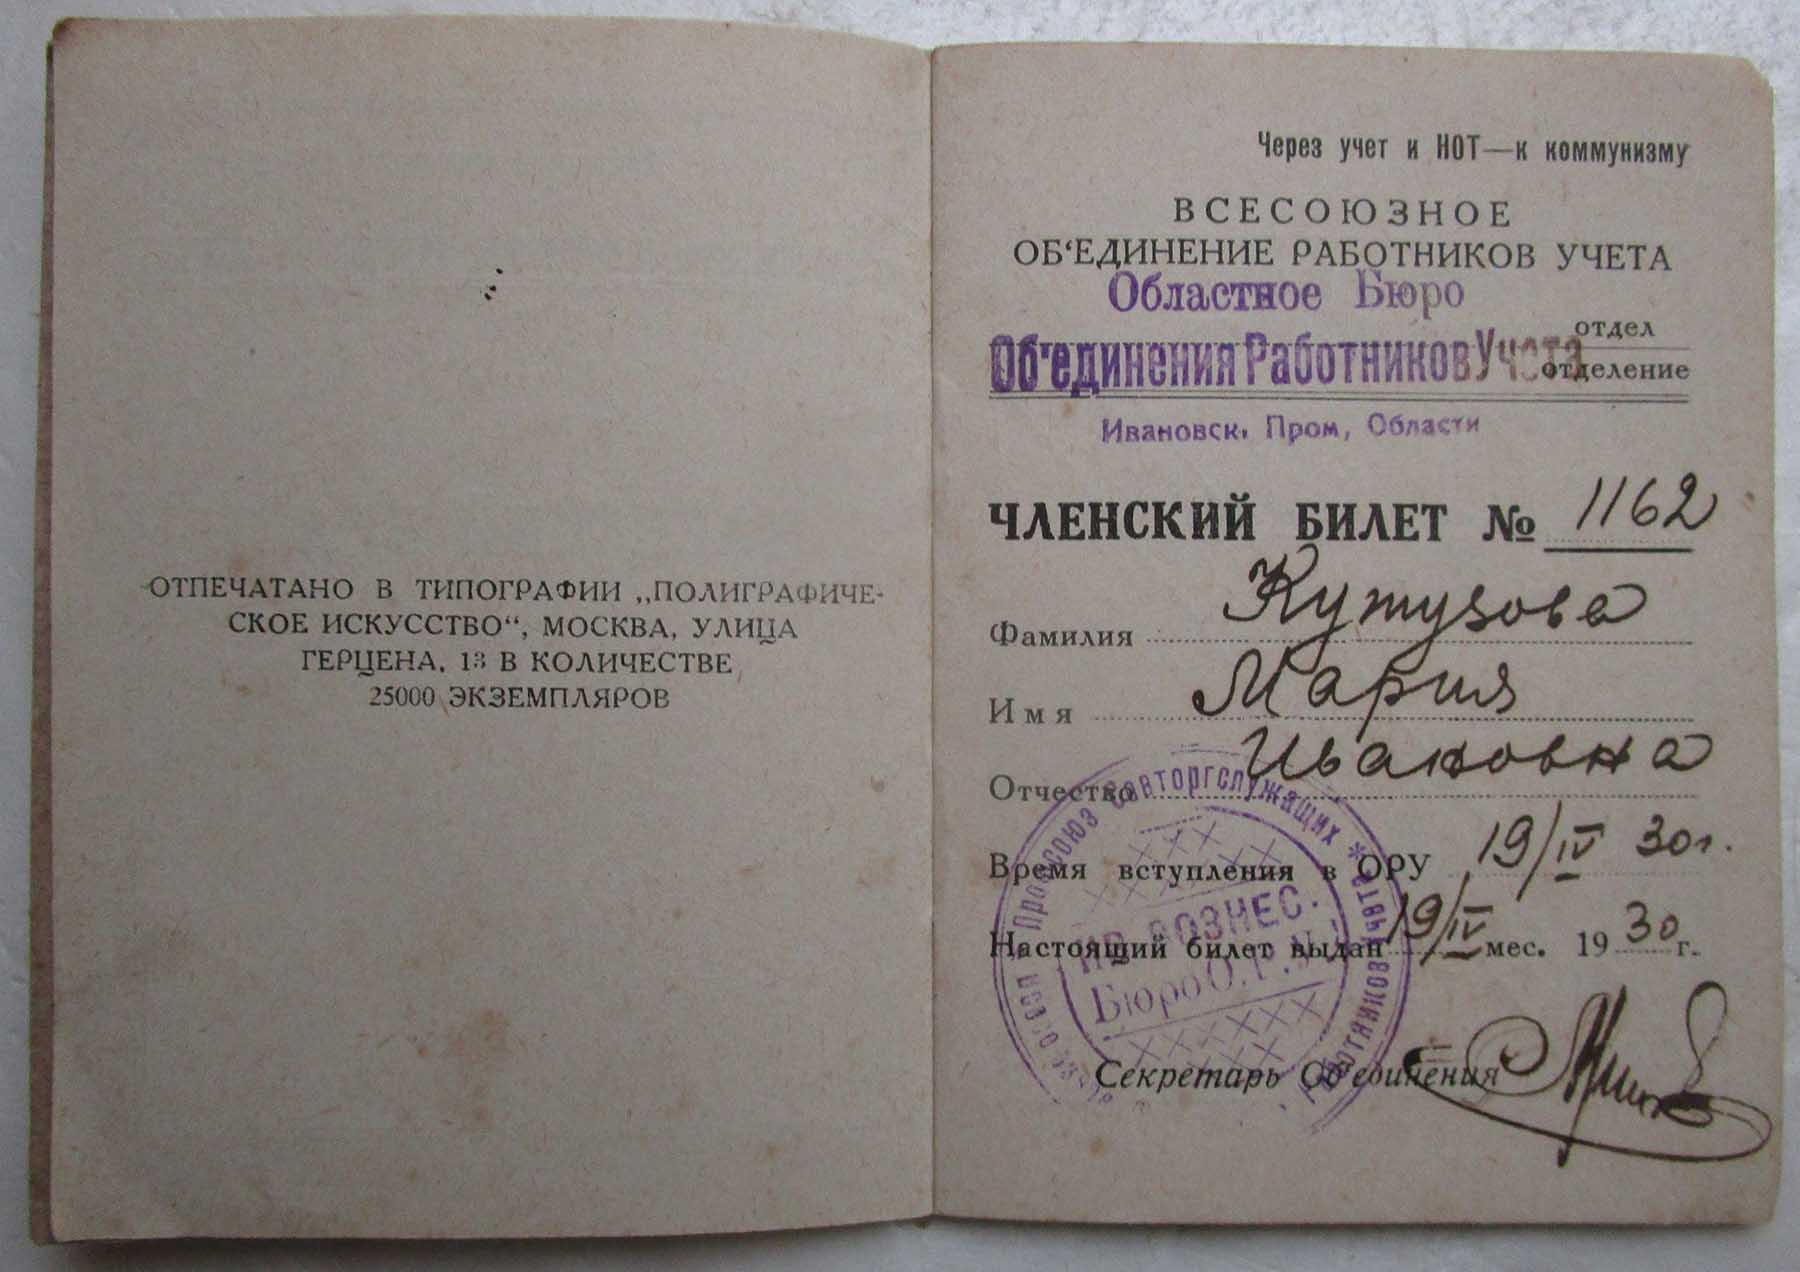 ОТПЕЧАТАНО В ТИПОГРАФИИ „ПОЛИГРАФИЧЕ-
СКОЕ ИСКУССТВО“, МОСКВА, УЛИЦА
ГЕРЦЕНА, 13 В КОЛИЧЕСТВЕ
25000 ЭКЗЕМПЛЯРОВ
Через учет и НОТ—к коммунизму
ВСЕСОЮЗНОЕ
ОБ‘ЕДИНЕНИЕ РАБОТНИКОВ УЧЕТА
Областное Бюро
отдел
Об‘единения Работников Учета
отделение
Ивановск. Пром, Области
ЧЛЕНСКИЙ БИЛЕТ № 1162
Фамилия Кутузова
Имя Мария
Отчество Ивановна
Время вступления в ОРУ 19/IV 30г.
Настоящий билет выдан 19/IV мес. 1930 г.
Секретарь Об‘единения
Профсоюз Совторгслужащих * Работников Учета
ИВ. ВОЗНЕС.
Бюро О.Р.У.